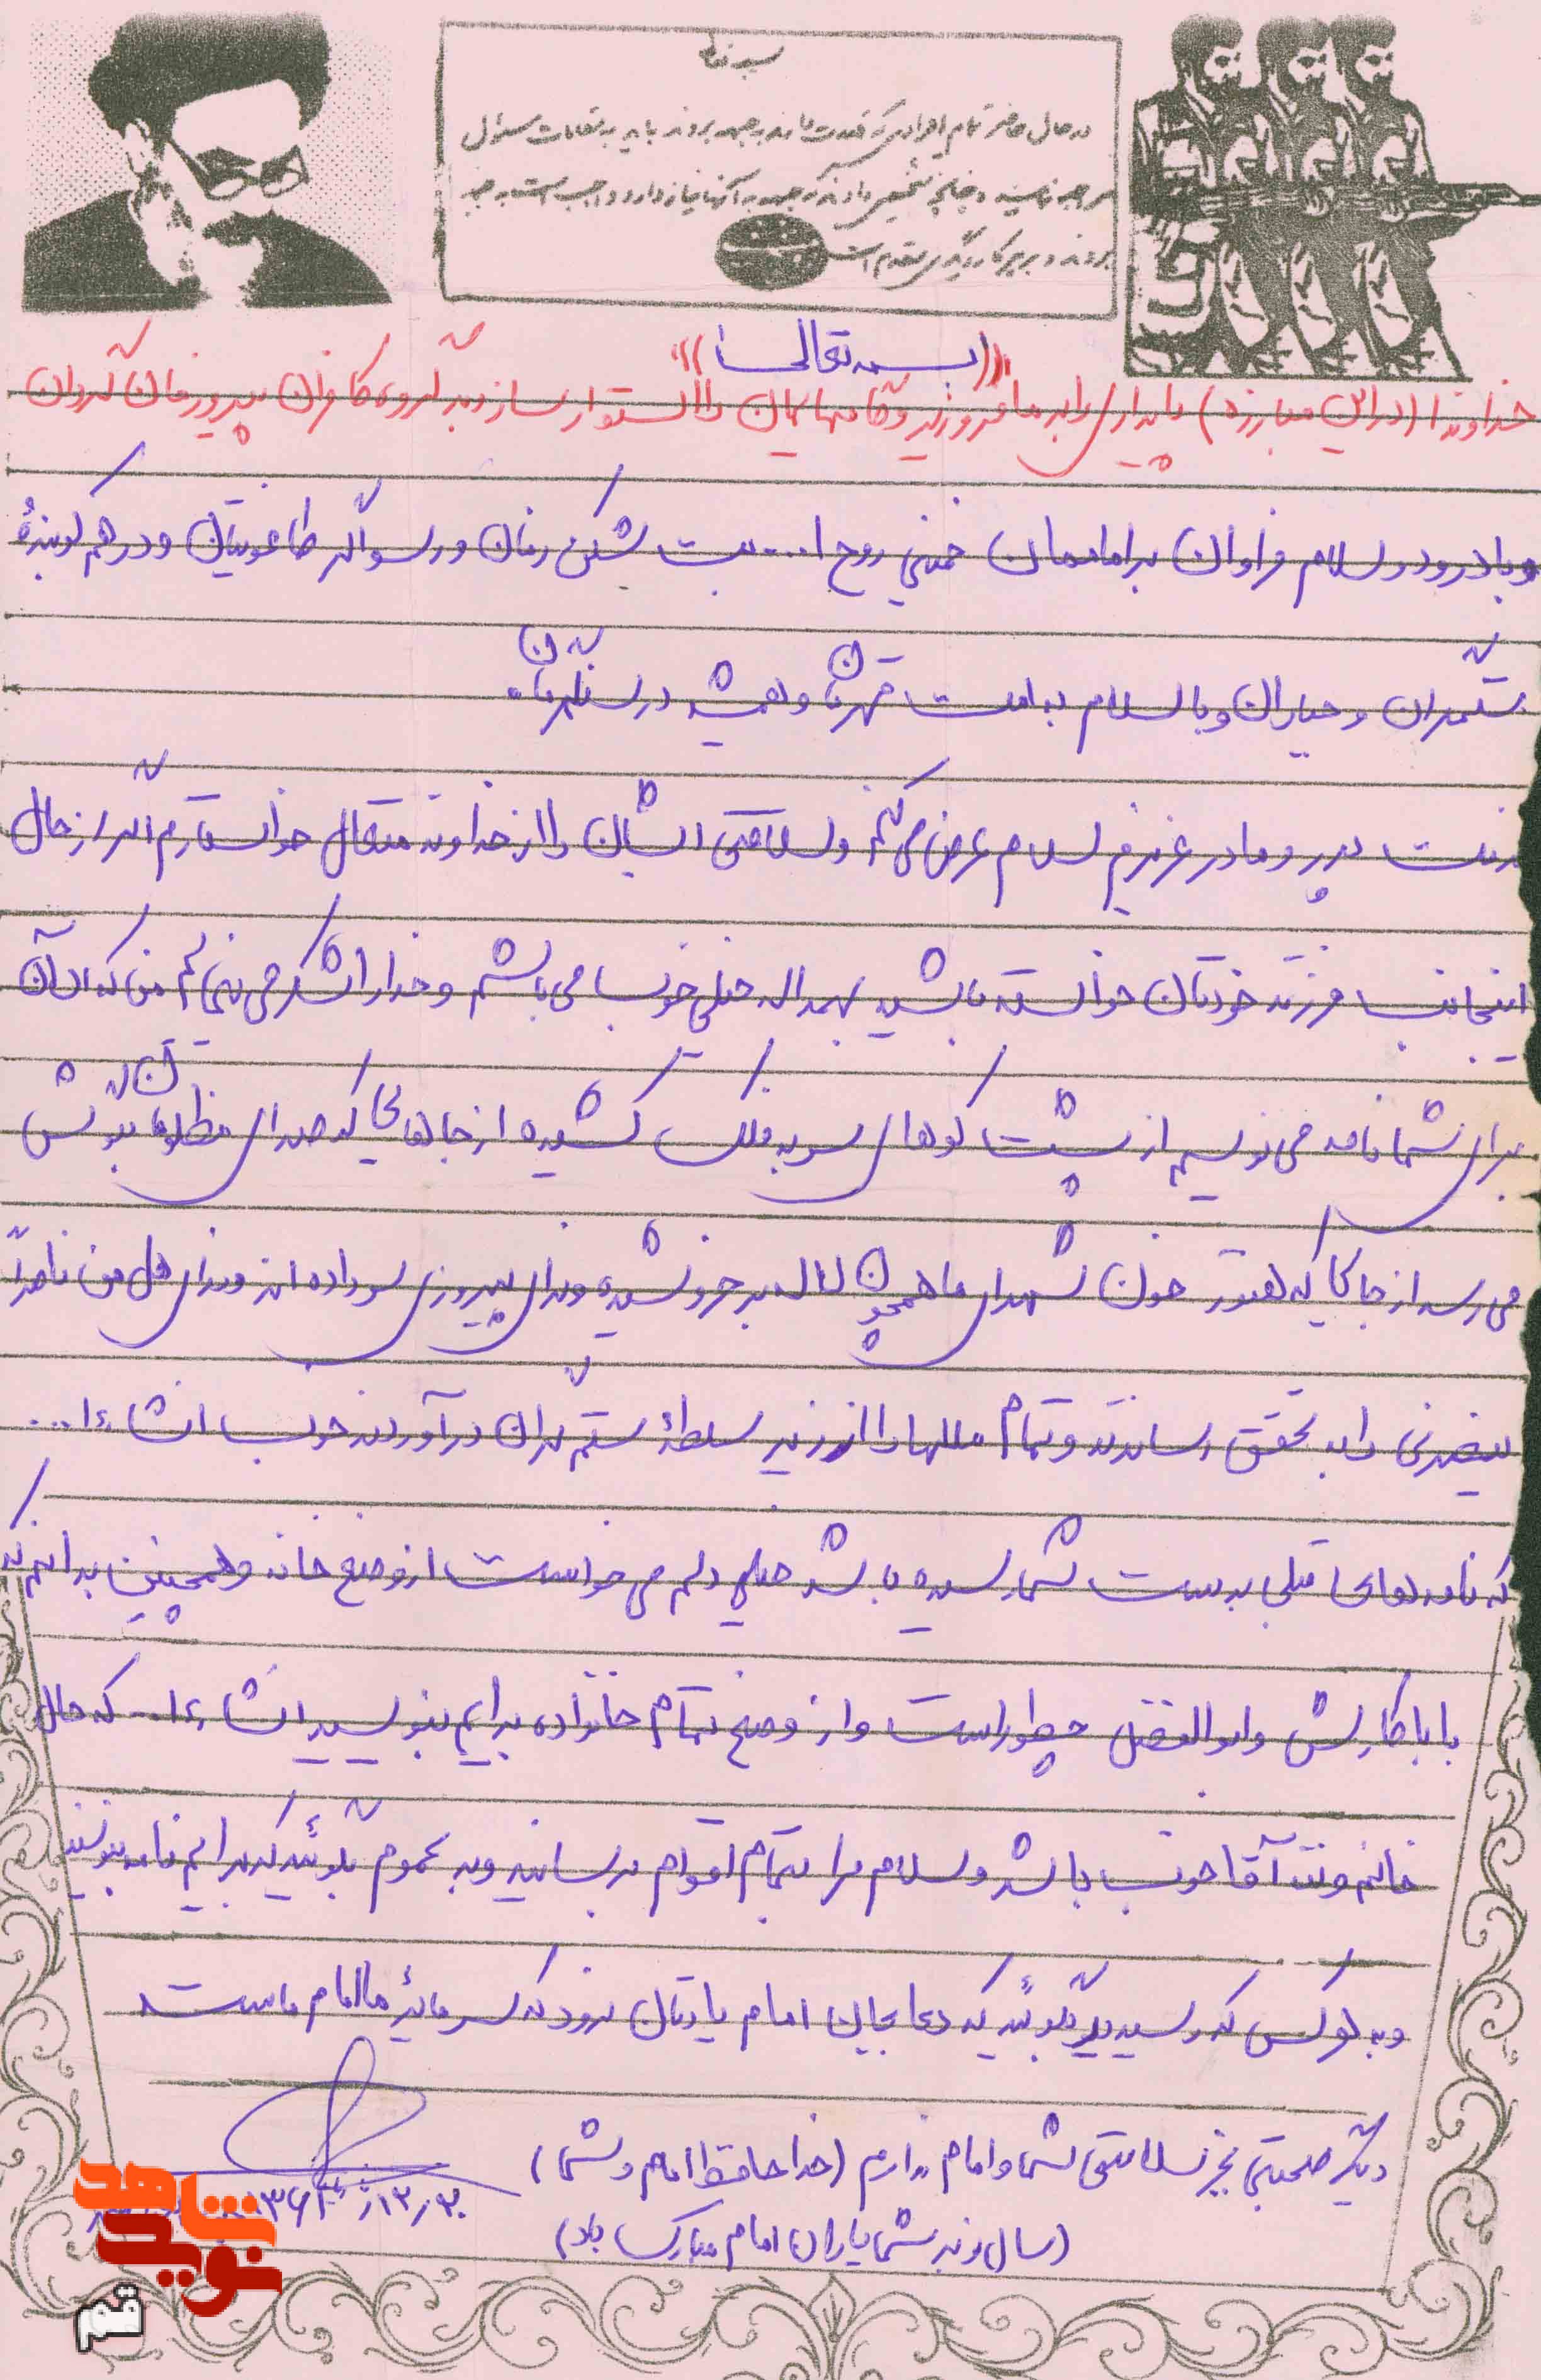 بسمه تعالی
در حال حاضر تمام افرادی که قدرت دارند به جبهه بروند باید به مقامات مسئول
مراجعه نمایند و چنانچه تشخیص دادند که جبهه به آنها نیاز دارد واجب است به جبهه
بروند و بر هر کار دیگری مقدم است
((بسمه تعالی))
خداوندا (در این مبارزه) پایداری را بر ما فرو ریز و قدمهایمان را استوار ساز و بر گروه کافران پیروزمان گردان
و با درود و سلام فراوان بر اماممان خمینی روح ا... بت شکن زمان و رسواگر طاغوتیان و درهم کوبندهٔ
ستمگران و جباران و با سلام به امت قهرمان و همیشه در سنگرمان
خدمت پدر و مادر عزیزم سلام عرض می کنم و سلامتی ایشان را از خداوند متعال خواستارم اگر از حال
اینجانب فرزند خودتان خواسته باشید بحمداله خیلی خوب می باشم و خدا را شکر می نمائم من که الان
برای شما نامه می نویسم از پشت کوهای سر به فلک کشیده از جاهائی که صدای مظلومان به گوش
می رسد از جائی که هنوز خون شهدای ما همچون لاله بر خروشیده و ندای پیروزی سر داده اند و ندای هل من ناصراً
ینصرنی را به تحقق رساندند و تمام مللها را از زیر سلطهٔ ستم گران در آوردند خوب انشاءا...
که نامه های قبلی بدست شما رسیده باشد خیلی دلم می خواست از وضع خانه و همچنین بدانم که
بابا کارش و ابوالفضل چطور است و از وضع تمام خانواده برایم بنویسید انشاءا... که حال
خانم و ننه آقا خوب باشد و سلام مرا بتمام اقوام برسانید و به عموم بگوئید که برایم نامه بنویسند
و به هر کس که رسیدید بگوئید که دعا بجان امام یادتان نرود که سرمایهٔ ما امام ماست
دیگر صحبتی بجز سلامتی شما و امام ندارم (خدا حافظ امام و شما)
۱۳۶۱/۱۲/۲۰
(سال نو بر شما یاران امام مبارک باد)
نوید شاهد
قم